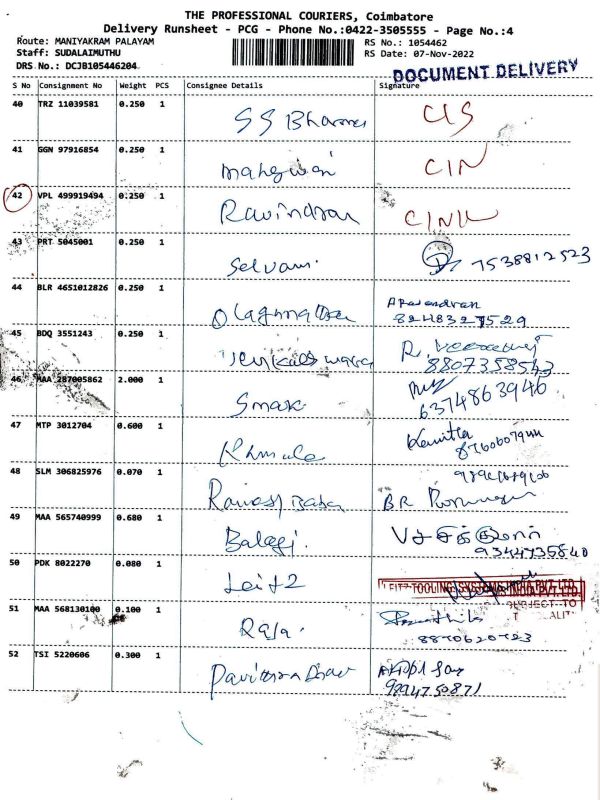 THE PROFESSIONAL COURIERS, Coimbatore
Delivery Runsheet - PCG - Phone No.:0422-3505555 - Page No.:4
Route: MANIYAKRAM PALAYAM RS No.: 1054462
Staff: SUDALAIMUTHU RS Date: 07-Nov-2022
DRS No.: DCJB105446204
DOCUMENT DELIVERY
S No Consignment No Weight PCS Consignee Details Signature
40 TRZ 11039581 0.250 1
SS Bharma CIS
41 GGN 97916854 0.250 1
maheswari CIN
42 VPL 499919494 0.250 1
Ravindran CINK
43 PRT 5045001 0.250 1
Selvam. 7538812523
44 BLR 4651012826 0.250 1
Arajendran
8248327529
45 BDQ 3551243 0.250 1
R.
8807358543
46 MAA 287005862 2.000 1
Smak
6374863940
47 MTP 3012704 0.600 1
Kavitha
48 SLM 306825976 0.070 1
BR
49 MAA 565740999 0.680 1
Balaji.
9344735840
50 PDK 8022270 0.080 1
Leitz
LEITZ TOOLING SYSTEMS INDIA PVT. LTD.
SUBJECT TO
51 MAA 568130100 0.100 1
Raja.
52 TSI 5220606 0.300 1
9894750871